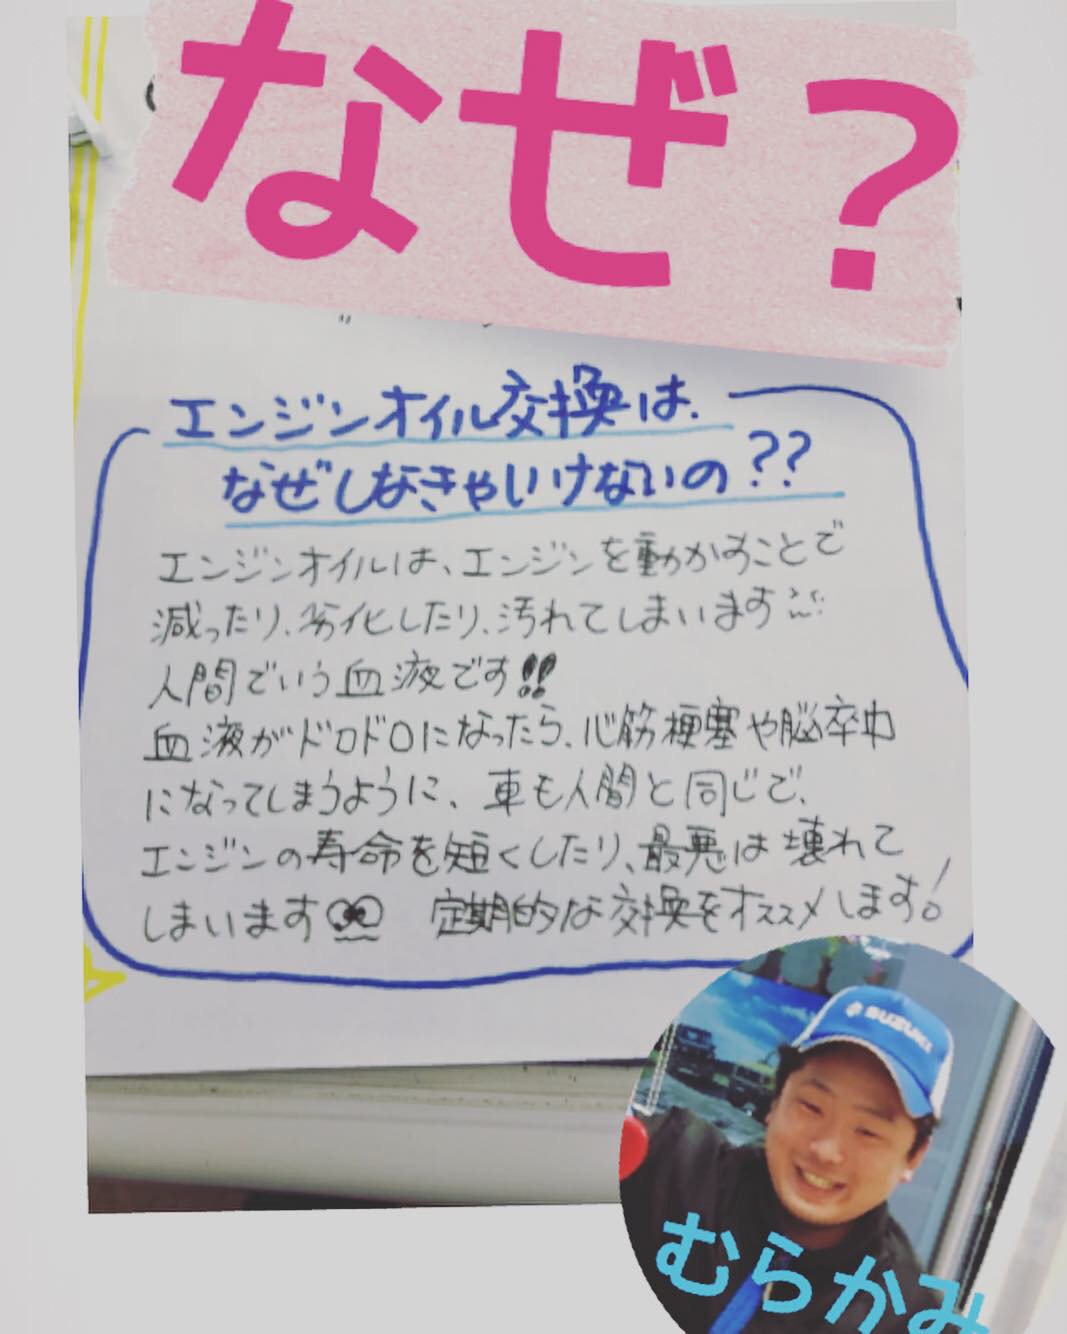 なぜ?
エンジンオイル交換は、
なぜしなきゃいけないの??
エンジンオイルは、エンジンを動かすことで
減ったり、劣化したり、汚れてしまいます
人間でいう血液です!!
血液がドロドロになったら、心筋梗塞や脳卒中
になってしまうように、車も人間と同じで、
エンジンの寿命を短くしたり、最悪は壊れて
しまいます 定期的な交換をオススメします!
SUZUKI
むらかみ